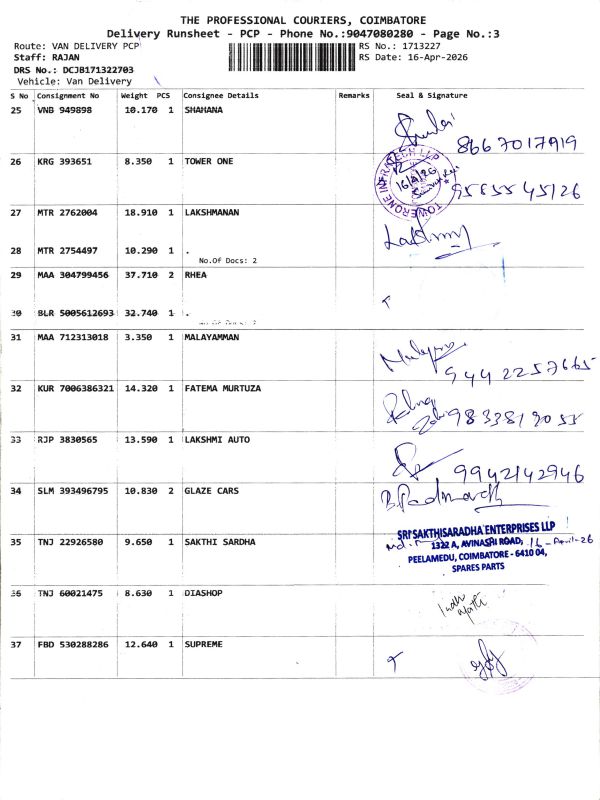 THE PROFESSIONAL COURIERS, COIMBATORE
Delivery Runsheet - PCP - Phone No.:9047080280 - Page No.:3
Route: VAN DELIVERY PCP
RS No.: 1713227
Staff: RAJAN
RS Date: 16-Apr-2026
DRS No.: DCJB171322703
Vehicle: Van Delivery
S No Consignment No Weight PCS Consignee Details Remarks Seal & Signature
25 VNB 949898 10.170 1 SHAHANA
8667017919
26 KRG 393651 8.350 1 TOWER ONE
TOWERONE INFRATECH LLP
16/4/26
95855 45126
27 MTR 2762004 18.910 1 LAKSHMANAN
28 MTR 2754497 10.290 1 .
No.Of Docs: 2
29 MAA 304799456 37.710 2 RHEA
30 BLR 5005612693 32.740 1 .
31 MAA 712313018 3.350 1 MALAYAMMAN
9442257665
32 KUR 7006386321 14.320 1 FATEMA MURTUZA
33 RJP 3830565 13.590 1 LAKSHMI AUTO
9942142946
34 SLM 393496795 10.830 2 GLAZE CARS
SRI SAKTHISARADHA ENTERPRISES LLP
35 TNJ 22926580 9.650 1 SAKTHI SARDHA
1322 A, AVINASHI ROAD, 16-April-26
PEELAMEDU, COIMBATORE - 6410 04,
SPARES PARTS
36 TNJ 60021475 8.630 1 DIASHOP
37 FBD 530288286 12.640 1 SUPREME